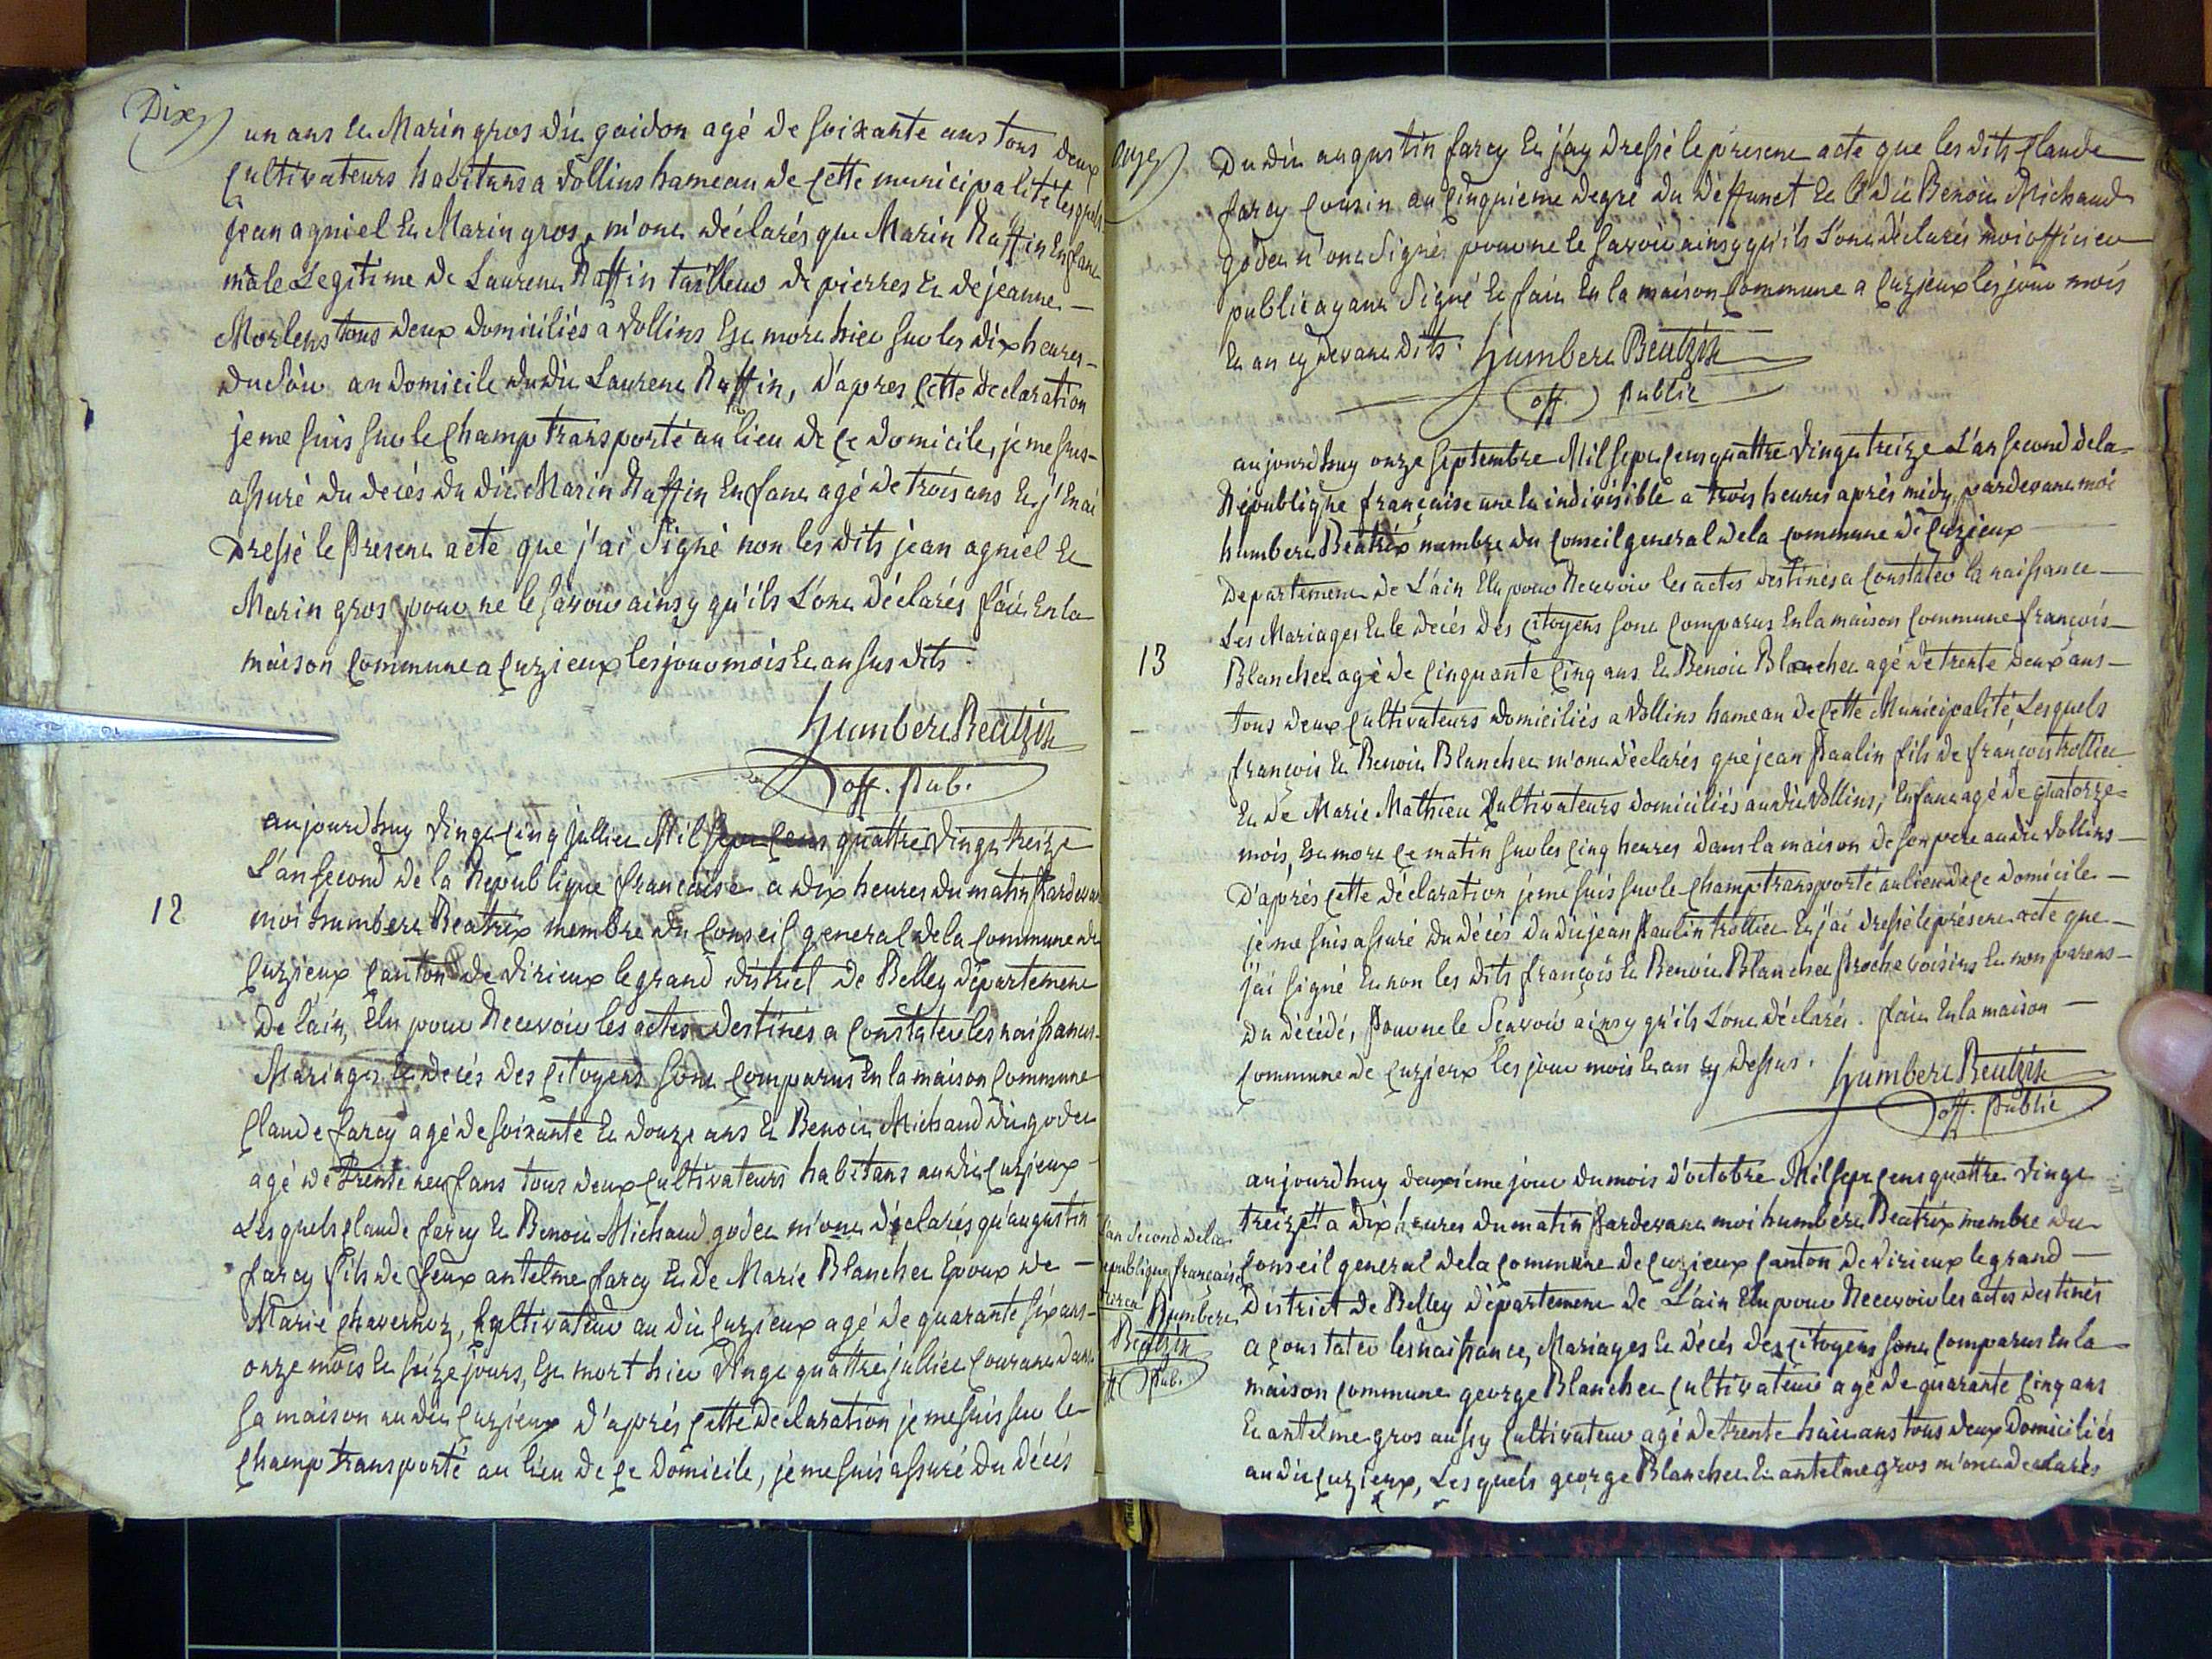 Dix
un ans et Marin gros dit goidon agé de soixante ans tous deux
Cultivateurs habitans a vollins hameau de Cette municipalité lesquels
jean agniel et Marin gros m'ont déclarés que Marin Raffin Enfant
mâle Legitime de Laurent Raffin tailleur de pierres et de jeanne
Morlens tous deux domiciliés a vollins Est mort hier sur les dix heures
du soir au domicile du dit Laurent Raffin, d'aprés Cette declaration
je me suis sur le Champ transporté au lieu de Ce domicile, je me suis
assuré du decés du dit Marin Raffin Enfant agé de trois ans Et j'En ai
Dressé le present acte que j'ai Signé non les dits jean agniel Et
Marin gros pour ne le savoir ainsy qu'ils L'ont déclarés fait En la
maison Commune a Cuzieux les jour mois Et an sus dits.
humbert Beatrix
off. Pub.
aujourdhuy vingt Cinq juillet Mil sept Cens quattre vingt treize
12
L'an second de la Republique francaise a dix heures du matin Pardevant
moi humbert Beatrix membre du Conseil general de la Commune de
Cuzieux Canton de virieux le grand district de Belley département
de lain, Elu pour Recevoir les actes destinés a Constater les naissances
Mariages Et decés des Citoyens sont Comparus En la maison Commune
Claude farcy agé de soixante Et douze ans Et Benoit Michaud dit godet
agé de trente neuf ans tous deux Cultivateurs habitans au dit Cuzieux
Lesquels Claude farcy Et Benoit Michaud godet m'ont déclarés qu'augustin
farcy fils de feux antelme farcy Et de Marie Blanchet Epoux de
Marie Chavernoz, Cultivateur au dit Cuzieux agé de quarante six ans
onze mois Et seize jours, Est mort hier vingt quattre juillet Courant dans
sa maison au dit Cuzieux d'aprés Cette declaration je me suis sur le
Champ transporté au lieu de Ce domicile, je me suis assuré du décés
onze
Du dit augustin farcy Et j'ay dressé le present acte que les dits Claude
farcy Cousin au Cinquieme degré du deffunct Et le dit Benoit Michaud
godet n'ont signés pour ne le savoir ainsy qu'ils L'ont déclarés moi officier
public ayant Signé Et fait En la maison Commune a Cuzieux les jour mois
Et an cy devant dits. humbert Beatrix
off. Public
aujourdhuy onze septembre Mil sept Cens quattre vingt treize L'an second de la
Républigue française une Et indivisible a trois heures aprés midy, pardevant moi
humbert Beatrix membre du Conseil general de la Commune de Cuzieux
Departement de L'ain Elu pour Recevoir les actes destinés a Constater la naissance
Les Mariages Et le decés des Citoyens sont Comparus En la maison Commune françois
13
Blanchet agé de Cinquante Cinq ans Et Benoit Blanchet agé de trente deux ans
tous deux Cultivateurs domiciliés a vollins hameau de Cette Municipalité, Lesquels
françois Et Benoit Blanchet m'ont déclarés que jean Paulin fils de françois trollier
Et de Marie Mathieu Cultivateurs domiciliés au dit vollins, Enfant agé de quatorze
mois, Est mort Ce matin sur les Cinq heures dans la maison de son pere au dit vollins
D'aprés Cette déclaration je me suis sur le Champ transporté au lieu de Ce domicile
je me suis assuré du décés du dit jean Paulin trollier Et j'ai dressé le présent acte que
j'ai signé Et non les dits françois Et Benoit Blanchet Proche voisins Et non parens
du décédé, Pour ne le sçavoir ainsy qu'ils L'ont déclarés. fait En la maison
Commune de Cuzieux les jour mois Et an cy dessus. humbert Beatrix
off. Public
aujourdhuy deuxiéme jour du mois d'octobre Mil sept Cens quattre vingt
treize a dix heures du matin Pardevant moi humbert Beatrix membre du
Conseil general de la Commune de Cuzieux Canton de virieux le grand
District de Belley département de L'ain Elu pour Recevoir les actes destinés
a Constater les naissance, Mariages Et décés des Citoyens sont Comparus En la
maison Commune george Blanchet Cultivateur agé de quarante Cinq ans
Et antelme gros aussy Cultivateur agé de trente huit ans tous deux domiciliés
au dit Cuzieux, Lesquels george Blanchet Et antelme gros m'ont declarés
l'an second de la
republique française
Humbert
Beatrix
Pub.